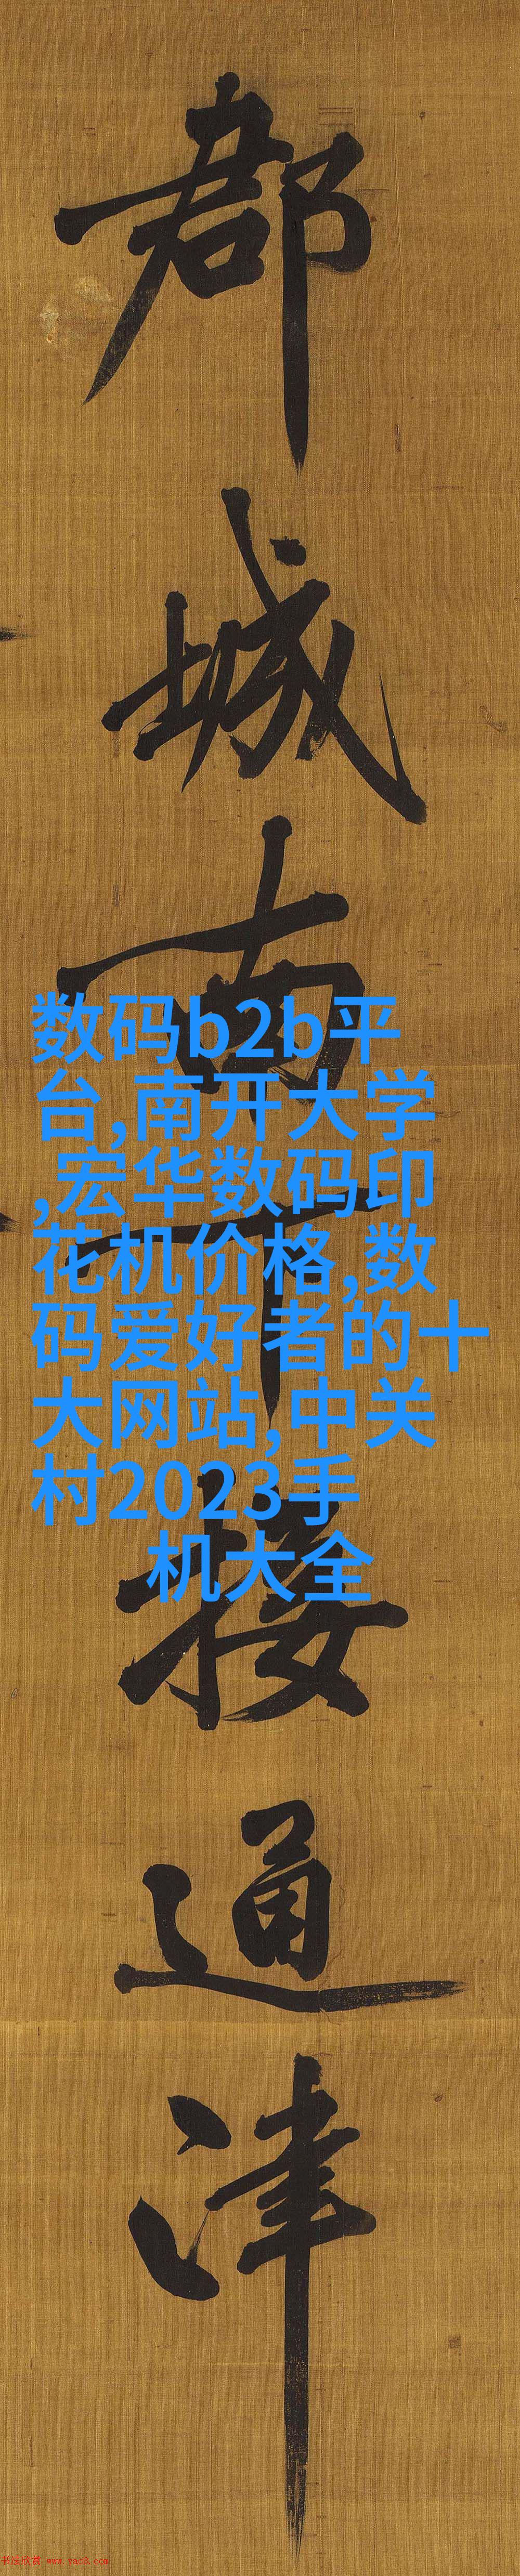 郡城南下接通津
数码b2b平
台,南开大学
,宏华数码印
花机价格,数
码爱好者的十
大网站,中关
村2023手
机大全
书法欣赏 www.yac8.com